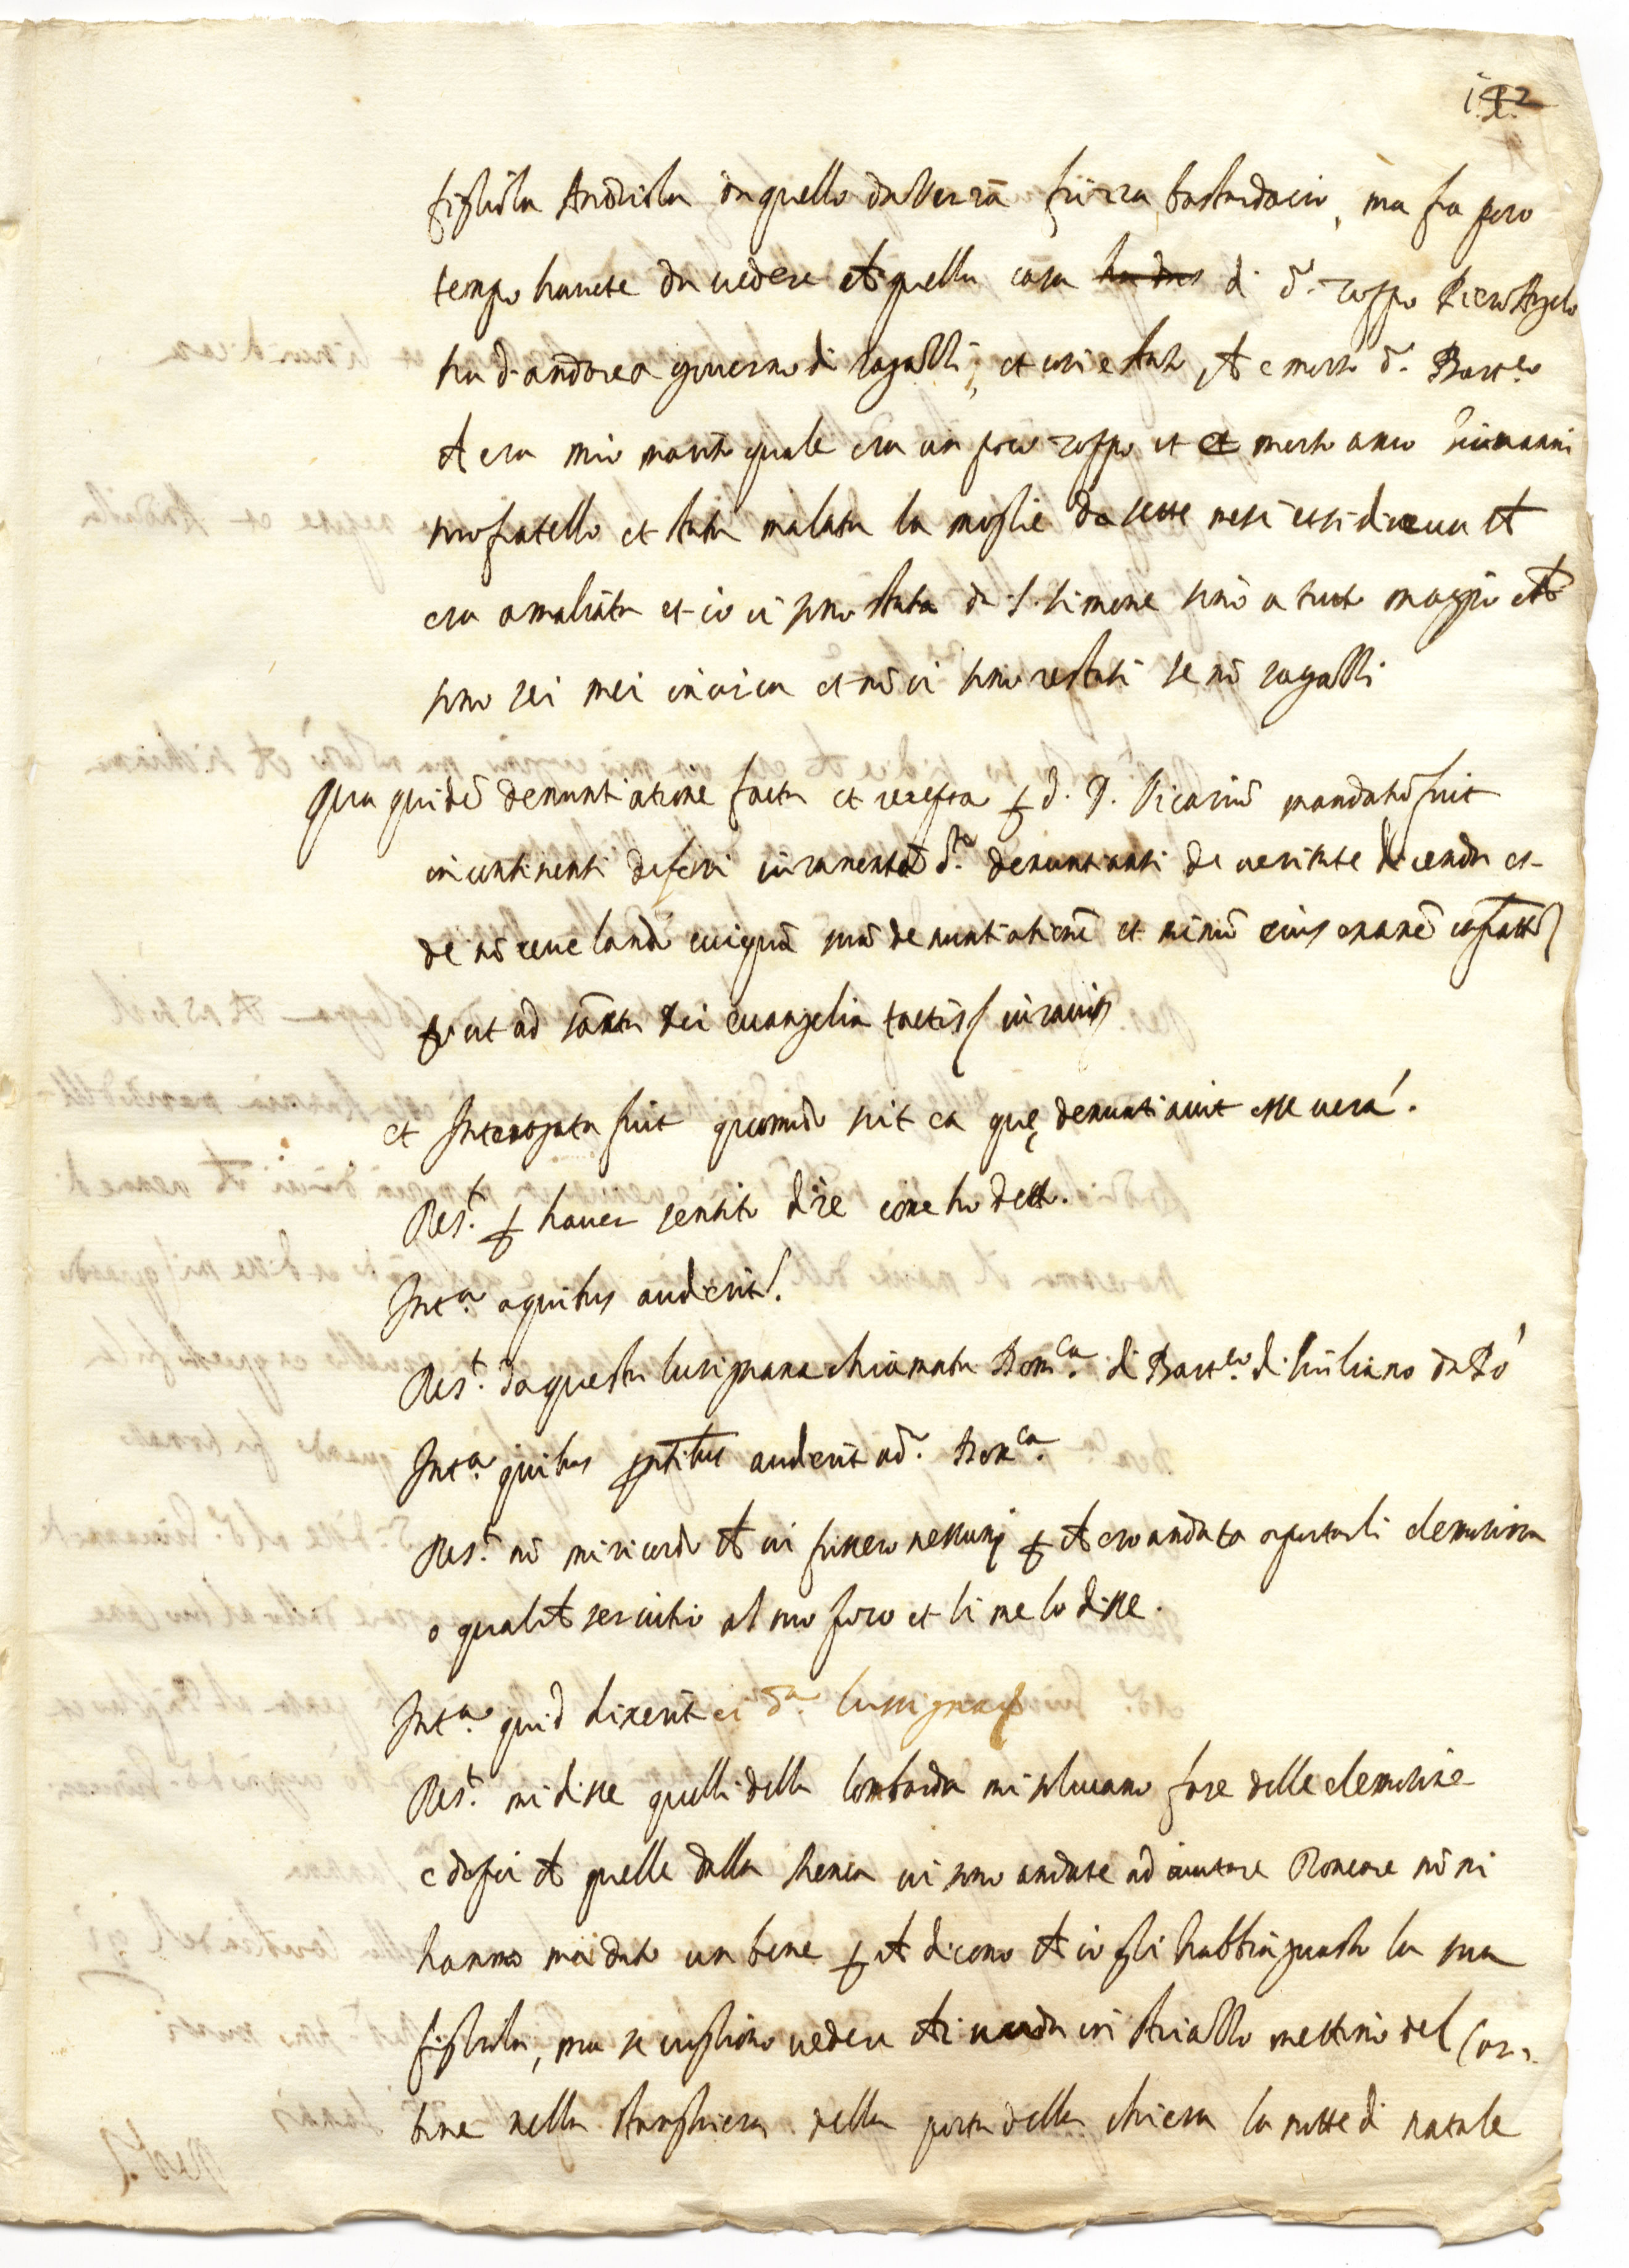 142
figliola Andriola da quello da Verzā fu ... bastardaccio, ma fa pero
tempo havete da vedere ch quella casa ha da es di d.o zoppo PieroAngelo
ha d'andare a governo di ragazzi, et cosi e stato, ch e morto d.o Bart.eo
ch era mio marito quale era un poco zoppo et è morto anco
suo fratello et stata malata la moglie da sette mesi et si diceva ch
era amaliata et io ci sono stata da S. Simone sino a tutto maggio ch
sono sei mesi in circa et nō ci sono restati se nō ragazzi
Qua quidē denuntiatione facta et recepta p d. D. Vicariū mandatū fuit
incontinenti deferri iuramentū d.te denuntianti de veritate dicenda et
de nō revelando cuiquā suā denuntiationē et minus eius examē
put ad sancta Dei evangelia tactis iuravit
et Interrogata fuit quomodo scit ea quę denuntiavit esse vera.
Res.t p haver sentito dire come ho detto.
Int.a a quibus audierit.
Res.t da questa lusignana chiamata Dom.ca di Bart.eo di Giuliano da Bo
Int.a quibus pntibus audierit a d.a Dom.ca
Res.t nō mi ricordo ch vi fussero nessuni p ch ero andata a portarli elemosina
o qualch servitio al suo foco et li me lo disse.
Int.a quid dixerit ei d.a lusignana
Res.t mi disse quelli della lombarda mi solevano fare delle elemosine
e dopoi ch quelle dalla ... vi sono andate ad aiutare ... nō mi
hanno mai dato un bene p ch dicono ch io gli habbia guasto la sua
figliola, ma se vogliono vedere chi vada in striazzo mettino del Car-
bone nella ... della porta della chiesa la notte di natale